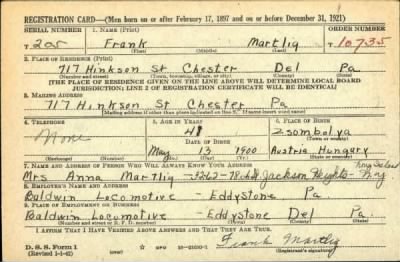 REGISTRATION CARD—(Men born on or after February 17, 1897 and on or before December 31, 1921)
SERIAL NUMBER 1. NAME (Print) ORDER NUMBER
T 205 Frank Martliq T 10735
(First) (Middle) (Last)
2. PLACE OF RESIDENCE (Print)
717 Hinkson St Chester Del Pa
(Number and street) (Town, township, village, or city) (County) (State)
[THE PLACE OF RESIDENCE GIVEN ON THE LINE ABOVE WILL DETERMINE LOCAL BOARD
JURISDICTION; LINE 2 OF REGISTRATION CERTIFICATE WILL BE IDENTICAL]
3. MAILING ADDRESS
717 Hinkson St Chester Pa
[Mailing address if other than place indicated on line 2. If same insert word same]
4. TELEPHONE 5. AGE IN YEARS 6. PLACE OF BIRTH
None 41 Zsombolya
DATE OF BIRTH
May 13 1900 Austria Hungary
(Exchange) (Number) (Mo.) (Day) (Yr.) (State or country)
7. NAME AND ADDRESS OF PERSON WHO WILL ALWAYS KNOW YOUR ADDRESS
Mrs Anna Martliq Jackson Heights NY
8. EMPLOYER'S NAME AND ADDRESS
Baldwin Locomotive - Eddystone Pa
9. PLACE OF EMPLOYMENT OR BUSINESS
Baldwin Locomotive - Eddystone Del Pa
(Number and street or R. F. D. number) (Town) (County) (State)
I AFFIRM THAT I HAVE VERIFIED ABOVE ANSWERS AND THAT THEY ARE TRUE.
D. S. S. Form 1
(Revised 1-1-42) GPO 16-21630-1 Frank Martliq
(Registrant's signature)